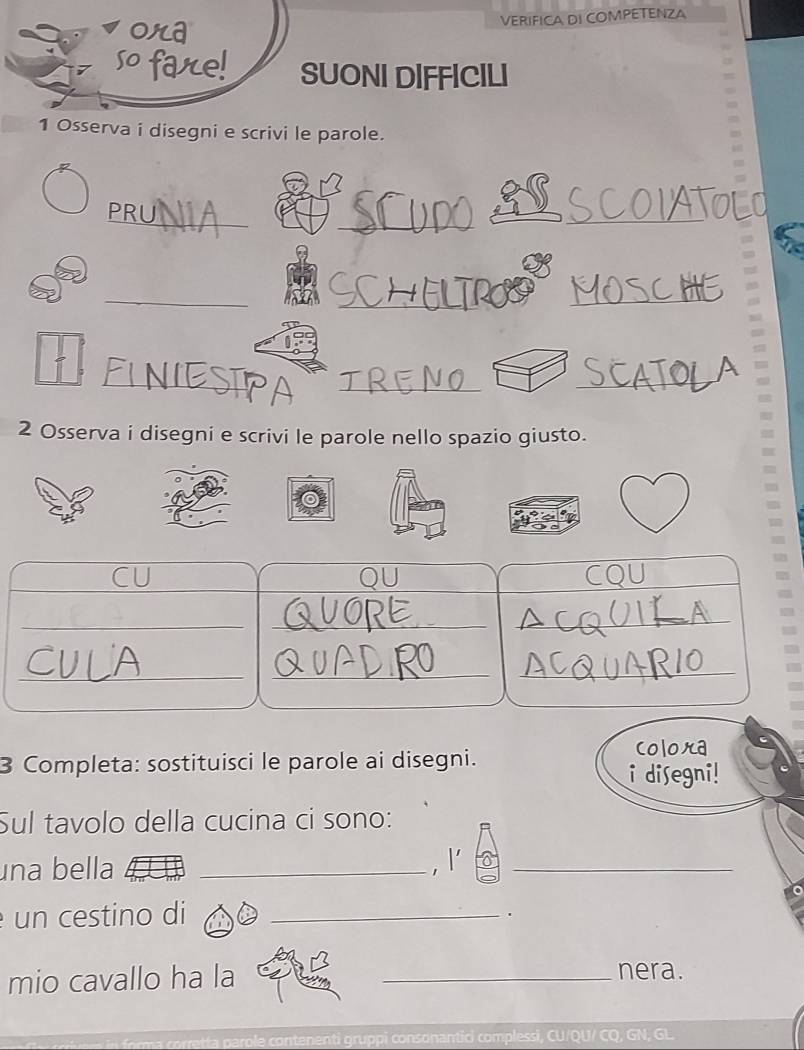 VERIFICA DI COMPETENZA
ora
so fare!
SUONI DIFFICILI
1 Osserva i disegni e scrivi le parole.
PRUNIA SCUDO SCOIATOLO
SCHELTRO MOSCHE
FINIESTRA TRENO SCATOLA
2 Osserva i disegni e scrivi le parole nello spazio giusto.
CU QU CQU
QUORE ACQUILA
CULA QUADRO ACQUARIO
3 Completa: sostituisci le parole ai disegni.
colora
i disegni!
Sul tavolo della cucina ci sono:
una bella , l'
e un cestino di .
mio cavallo ha la nera.
in forma corretta parole contenenti gruppi consonantici complessi, CU/QU/ CQ, GN, GL.